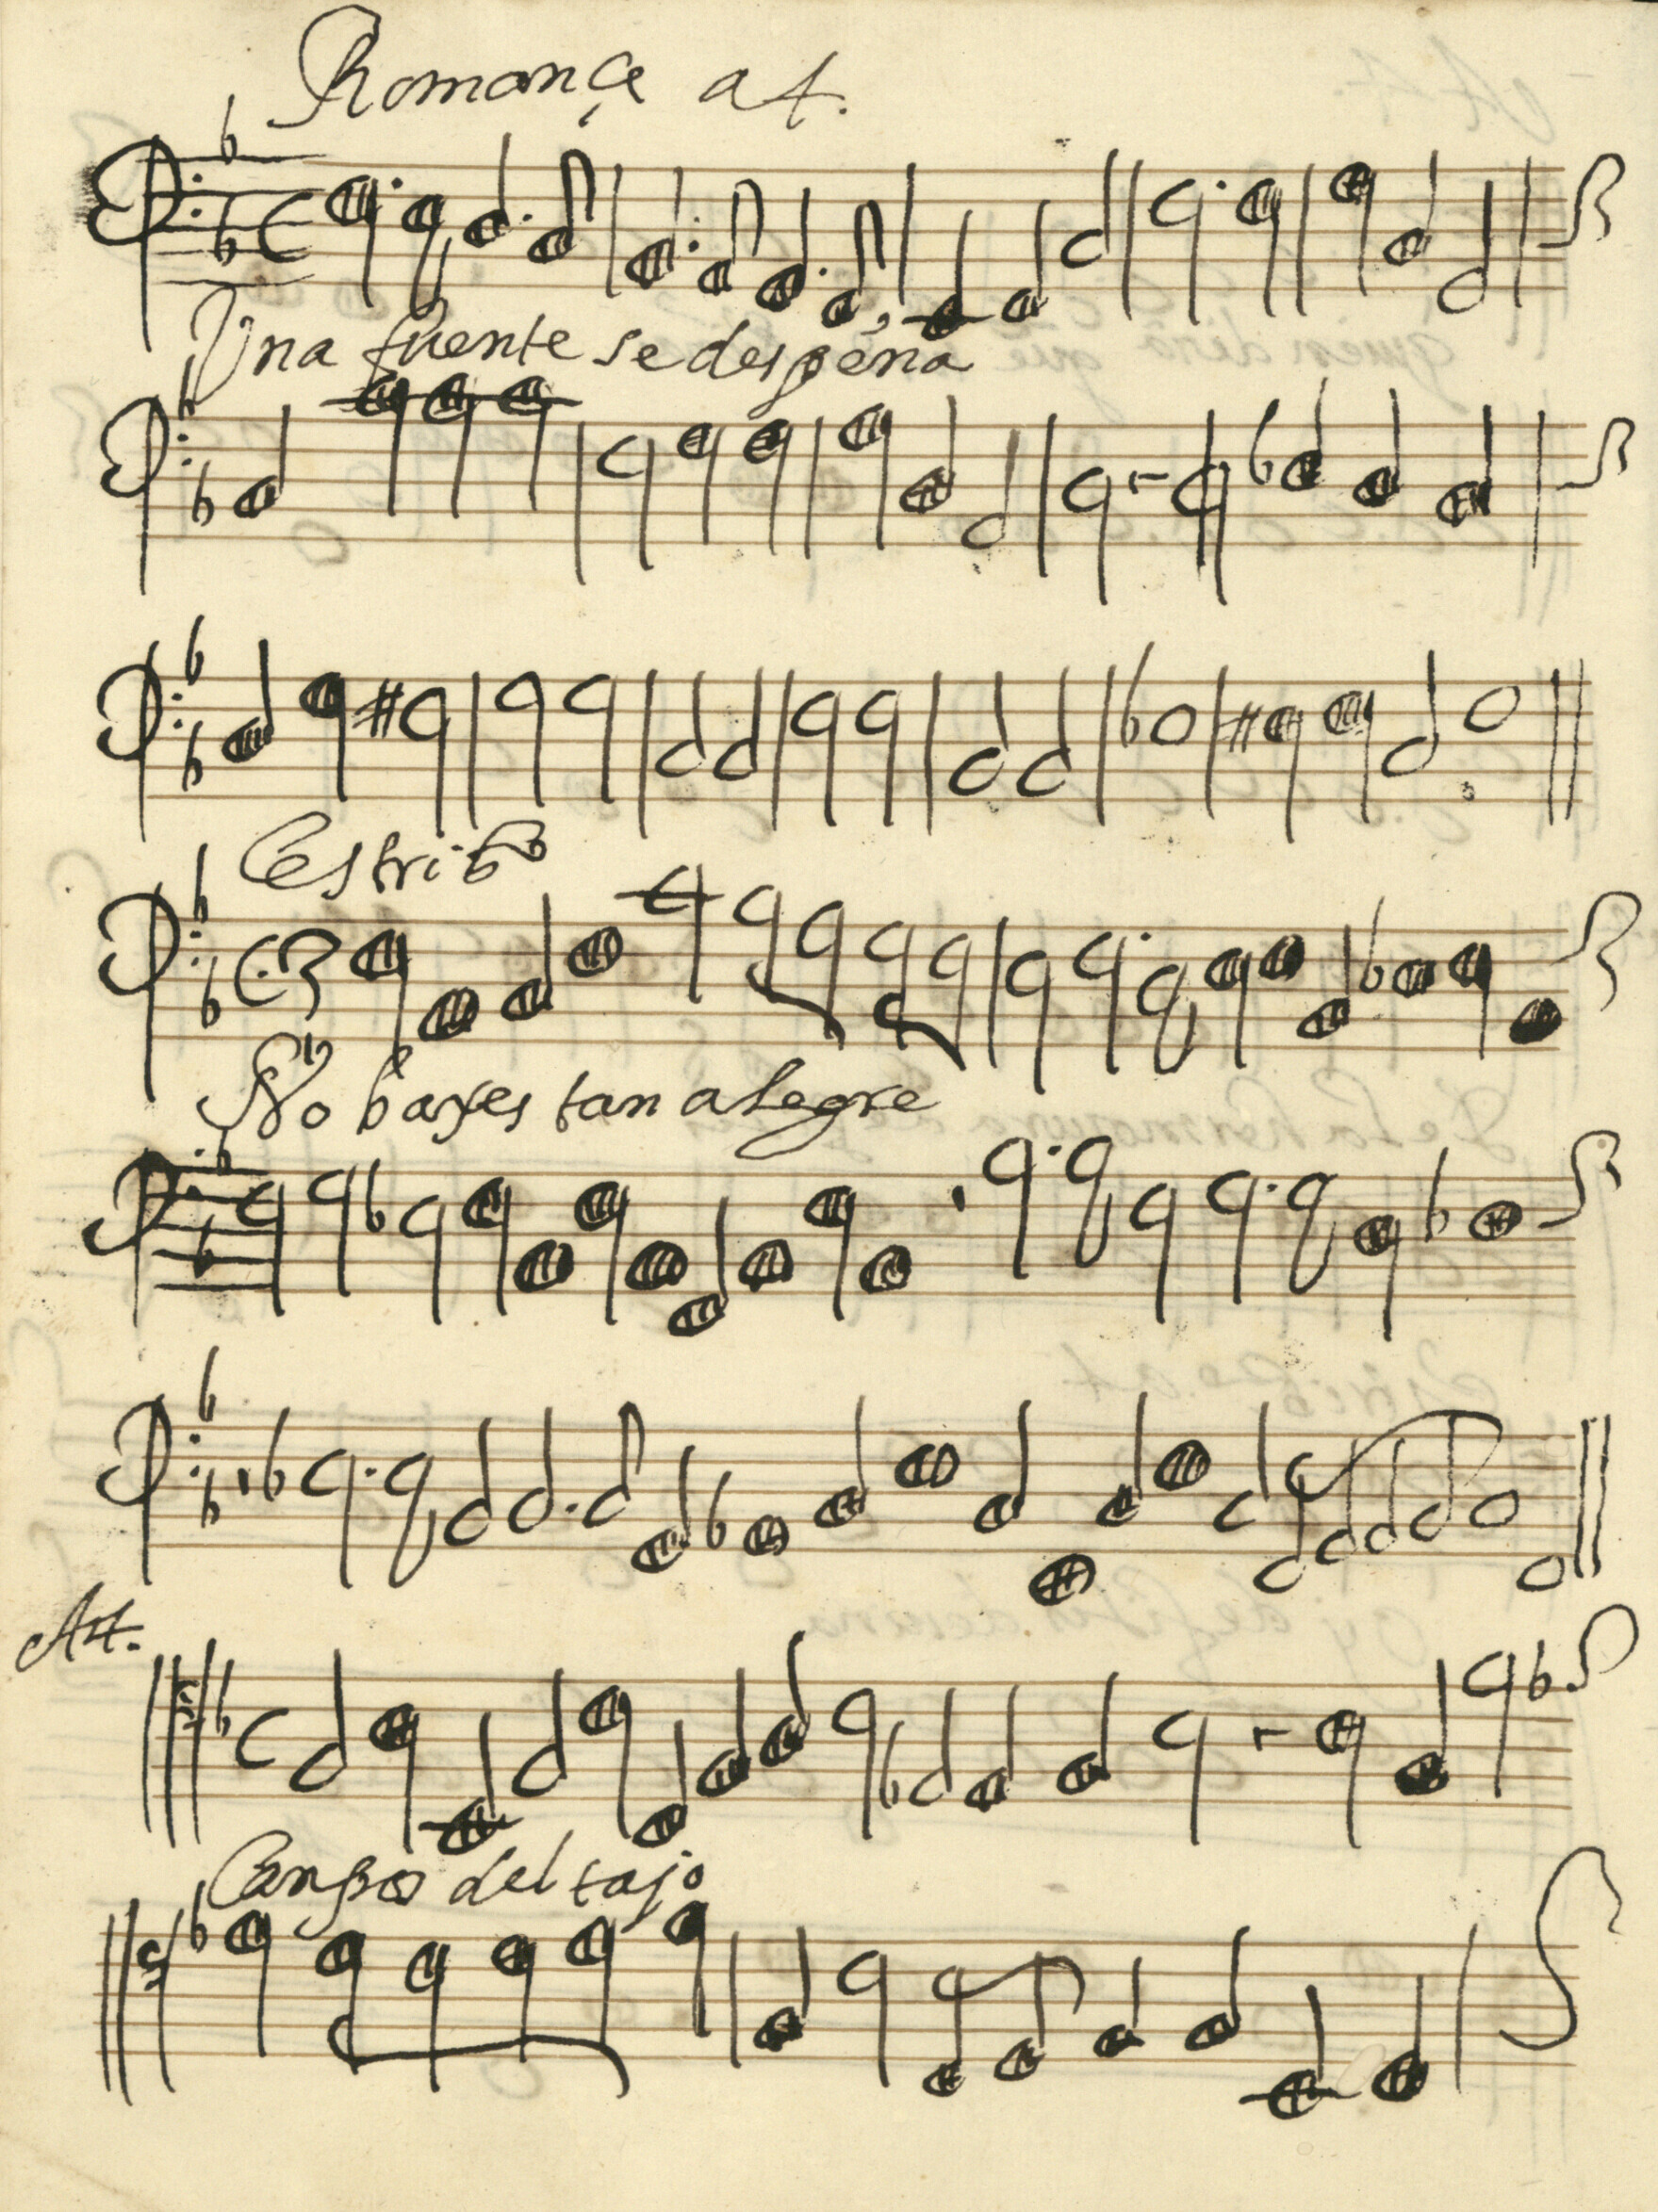 Romançe a 4.
Una fuente se despeña
Estribo
No baxes tan alegre
A 4.
Campos del tajo